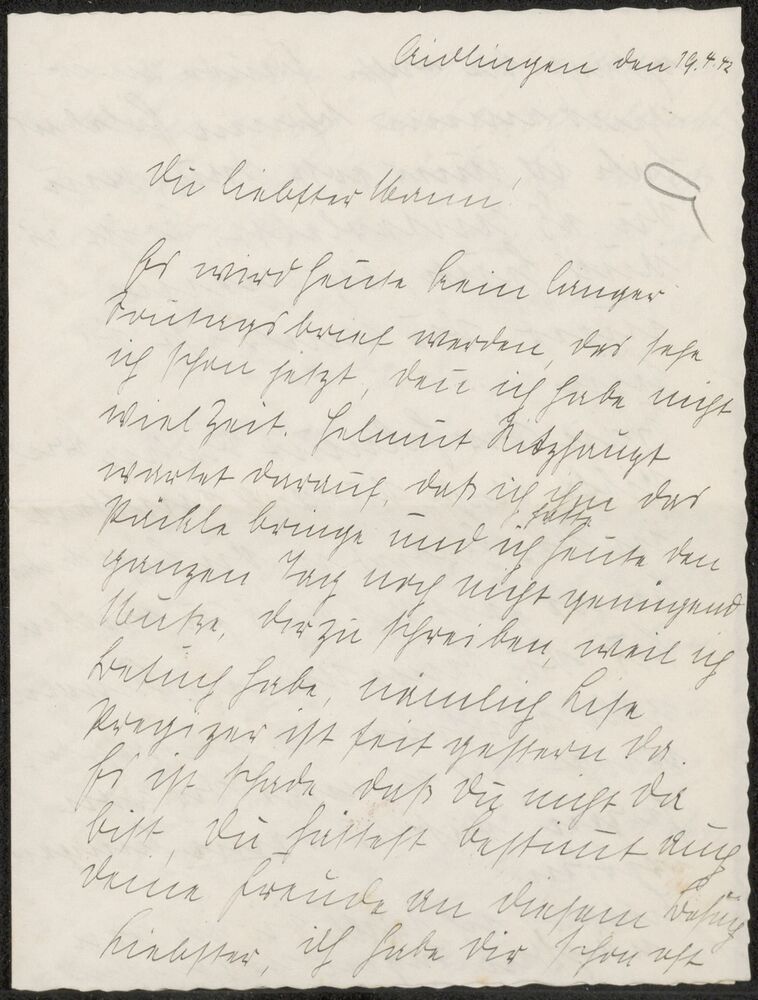 Aidlingen den 19.4.42
Du liebster Mann!
Es wird heute kein langer
Sonntagsbrief werden, das sehe
ich schon jetzt, den ich habe nicht
viel Zeit. Helmut Kitzhaupt
wartet darauf, daß ich ihm das
Päckle bringe und ich hatte heute den
ganzen Tag noch nicht genügend
Muße, dir zu schreiben, weil ich
Besuch habe, nämlich Lise
Pregizer ist seit gestern da.
Es ist schade daß Du nicht da
bist, Du hättest bestimt auch
deine Freude an diesem Besuch
Liebster, ich habe dir schon oft